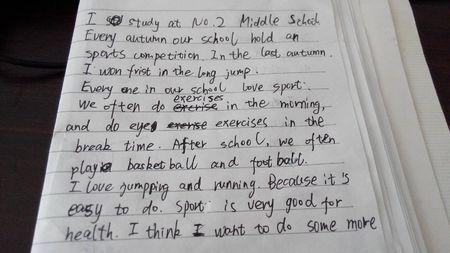 I study at No.2 Middle School.
Every autumn our school hold an
sports competition. In the last autumn.
I won frist in the long jump.
Every one in our school love sport.
We often do exercises in the morning,
and do eye exercises in the
break time. After school, we often
play basketball and football.
I love jumpping and running. Because it's
easy to do. Sport is very good for
health. I think I want to do some more